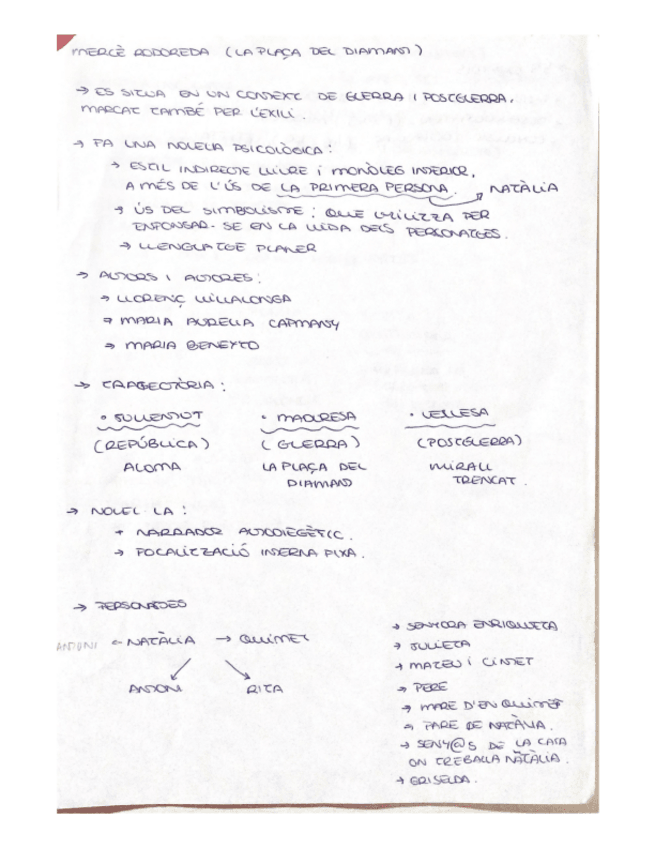 MERCÈ RODOREDA (LA PLAÇA DEL DIAMANT)
→ ES SITUA EN UN CONTEXT DE GUERRA I POSTGUERRA,
MARCAT TAMBÉ PER L'EXILI.
→ FA UNA NOVEL·LA PSICOLÒGICA:
→ ESTIL INDIRECTE LLIURE I MONÒLEG INTERIOR,
A MÉS DE L'ÚS DE LA PRIMERA PERSONA. → NATÀLIA
→ ÚS DEL SIMBOLISME: QUE UTILITZA PER
ENFONSAR-SE EN LA VIDA DELS PERSONATGES.
→ LLENGUATGE PLANER
→ AUTORS I AUTORES:
→ LLORENÇ VILLALONGA
→ MARIA AURELIA CAPMANY
→ MARIA BENEYTO
→ TRAJECTÒRIA:
• JOVENTUT • MADURESA • VELLESA
(REPÚBLICA) (GUERRA) (POSTGUERRA)
ALOMA LA PLAÇA DEL MIRALL
DIAMANT TRENCAT.
→ NOVEL·LA:
→ NARRADOR AUTODIEGÈTIC.
→ FOCALITZACIÓ INTERNA FIXA.
→ PERSONATGES
ANTONI ← NATÀLIA → QUIMET
ANTONI RITA
→ SENYORA ENRIQUETA
→ JULIETA
→ MATEU I CINTET
→ PERE
→ MARE D'EN QUIMET
→ PARE DE NATÀLIA.
→ SENY@S DE LA CASA
ON TREBALLA NATÀLIA.
→ GRISELDA.